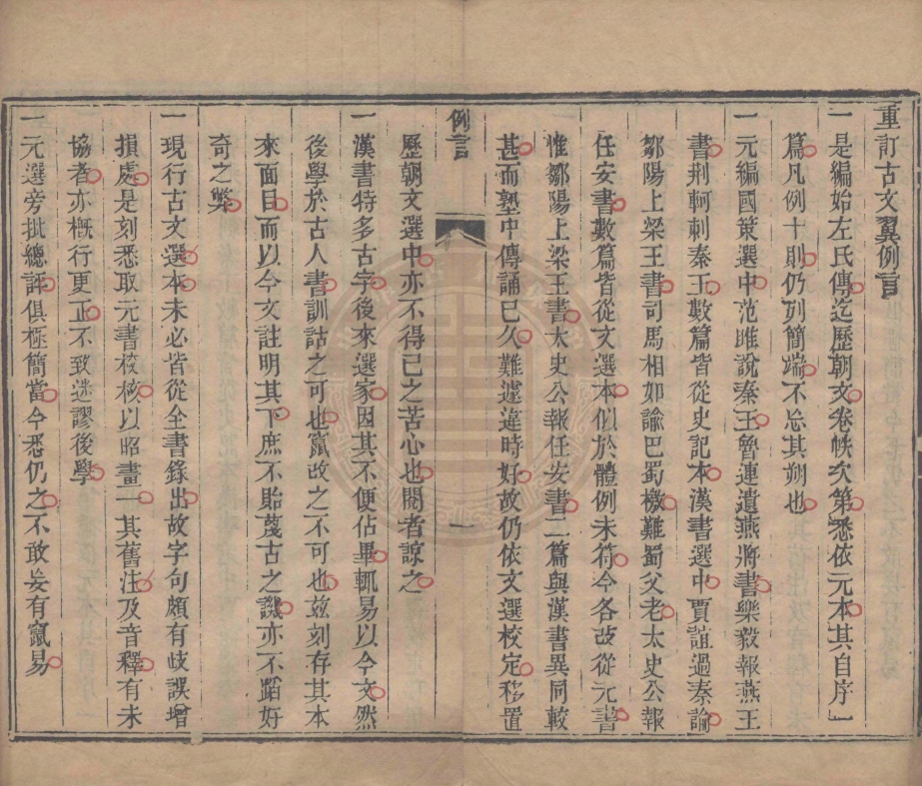 重訂古文翼例言
一是編始左氏傳迄歷朝文卷帙次第悉依元本其自序一
篇凡例十則仍列簡端不忘其朔也
一元編國策選中范雎說秦王魯連遺燕將書樂毅報燕王
書荆軻刺秦王數篇皆從史記本漢書選中賈誼過秦論
鄒陽上梁王書司馬相如諭巴蜀檄難蜀父老太史公報
任安書數篇皆從文選本似於體例未符今各改從元書
惟鄒陽上梁王書太史公報任安書二篇與漢書異同較
甚而塾中傳誦已久難遽違時好故仍依文選校定移置
例言
一
歷朝文選中亦不得已之苦心也閱者諒之
一漢書特多古字後來選家因其不便佔畢輒易以今文然
後學於古人書訓詁之可也竄改之不可也茲刻存其本
來面目而以今文註明其下庶不貽蔑古之譏亦不蹈好
奇之獘
一現行古文選本未必皆從全書錄出故字句頗有歧誤增
損處是刻悉取元書校核以昭畫一其舊注及音釋有未
協者亦概行更正不致迷謬後學
一元選旁批總評俱極簡當今悉仍之不敢妄有竄易